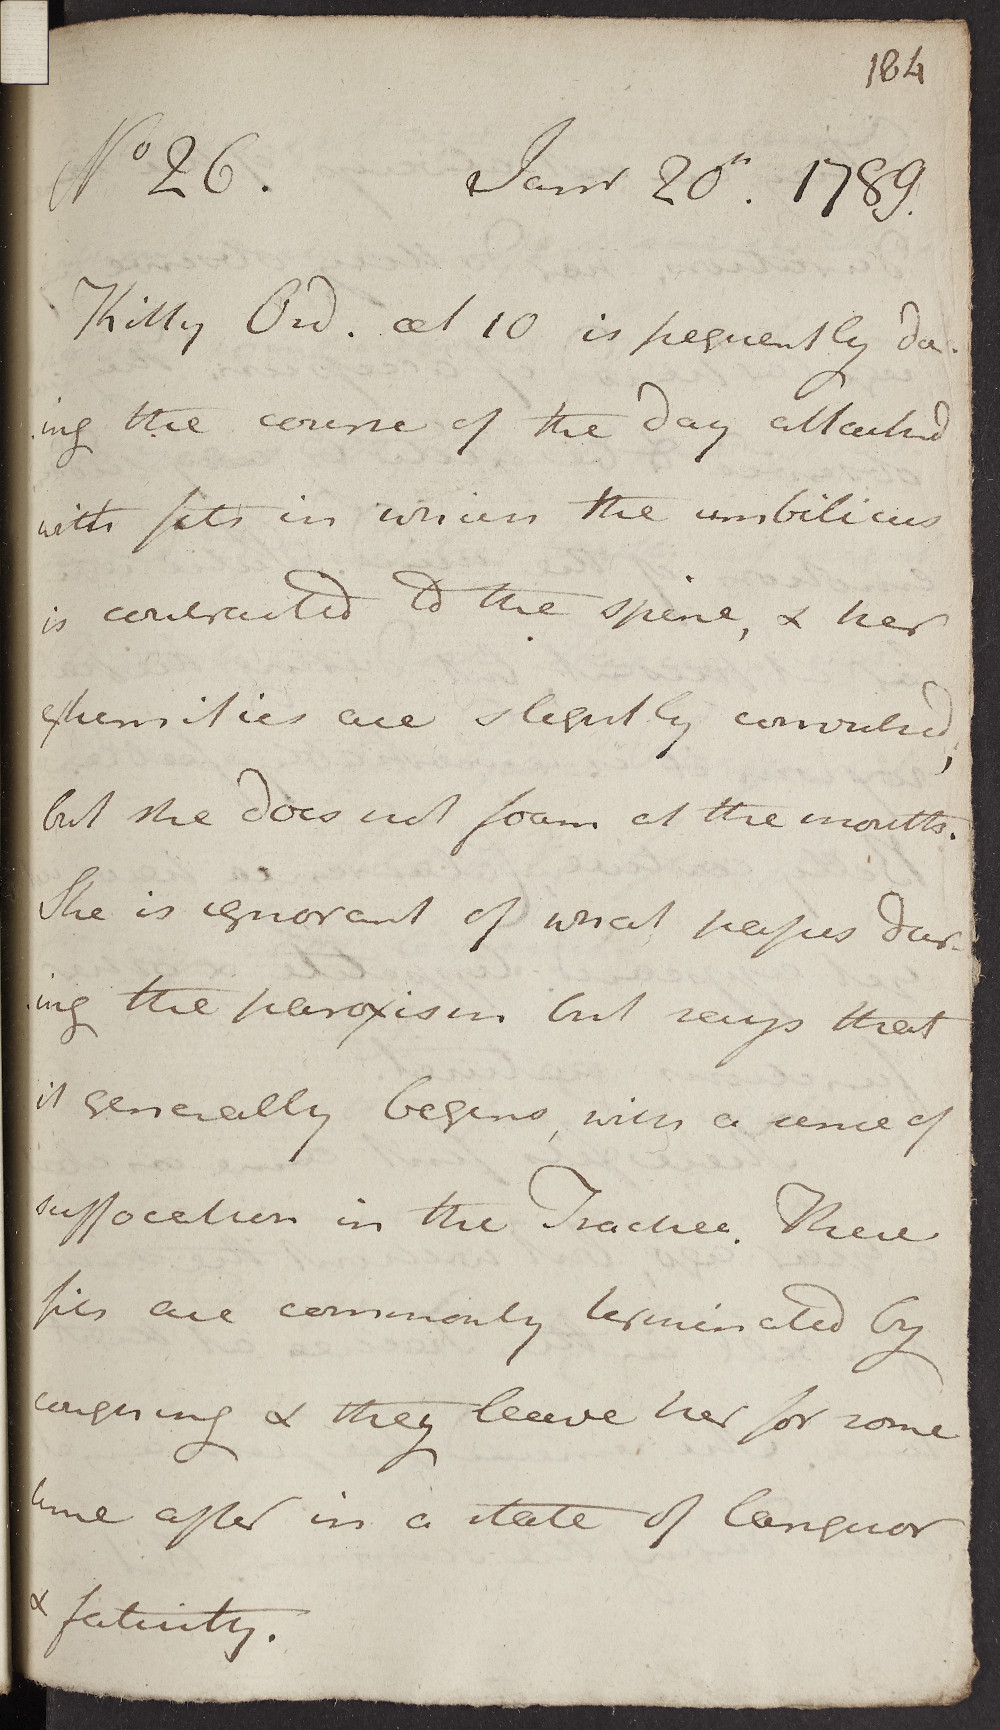 184
No 26. Janr 20th. 1789.
Kitty Ord. æt 10 is frequently du-
ing the course of the day attacked
with fits in which the umbilicus
is contracted to the spine, & her
extremities are slightly convulsed,
but she does not foam at the mouth.
She is ignorant of what passes dur-
ing the paroxism but says that
it generally begins, with a sence of
suffocation in the Trachea. These
fits are commonly terminated by
coughing & they leave her for some
time after in a state of languor
& fatuity.